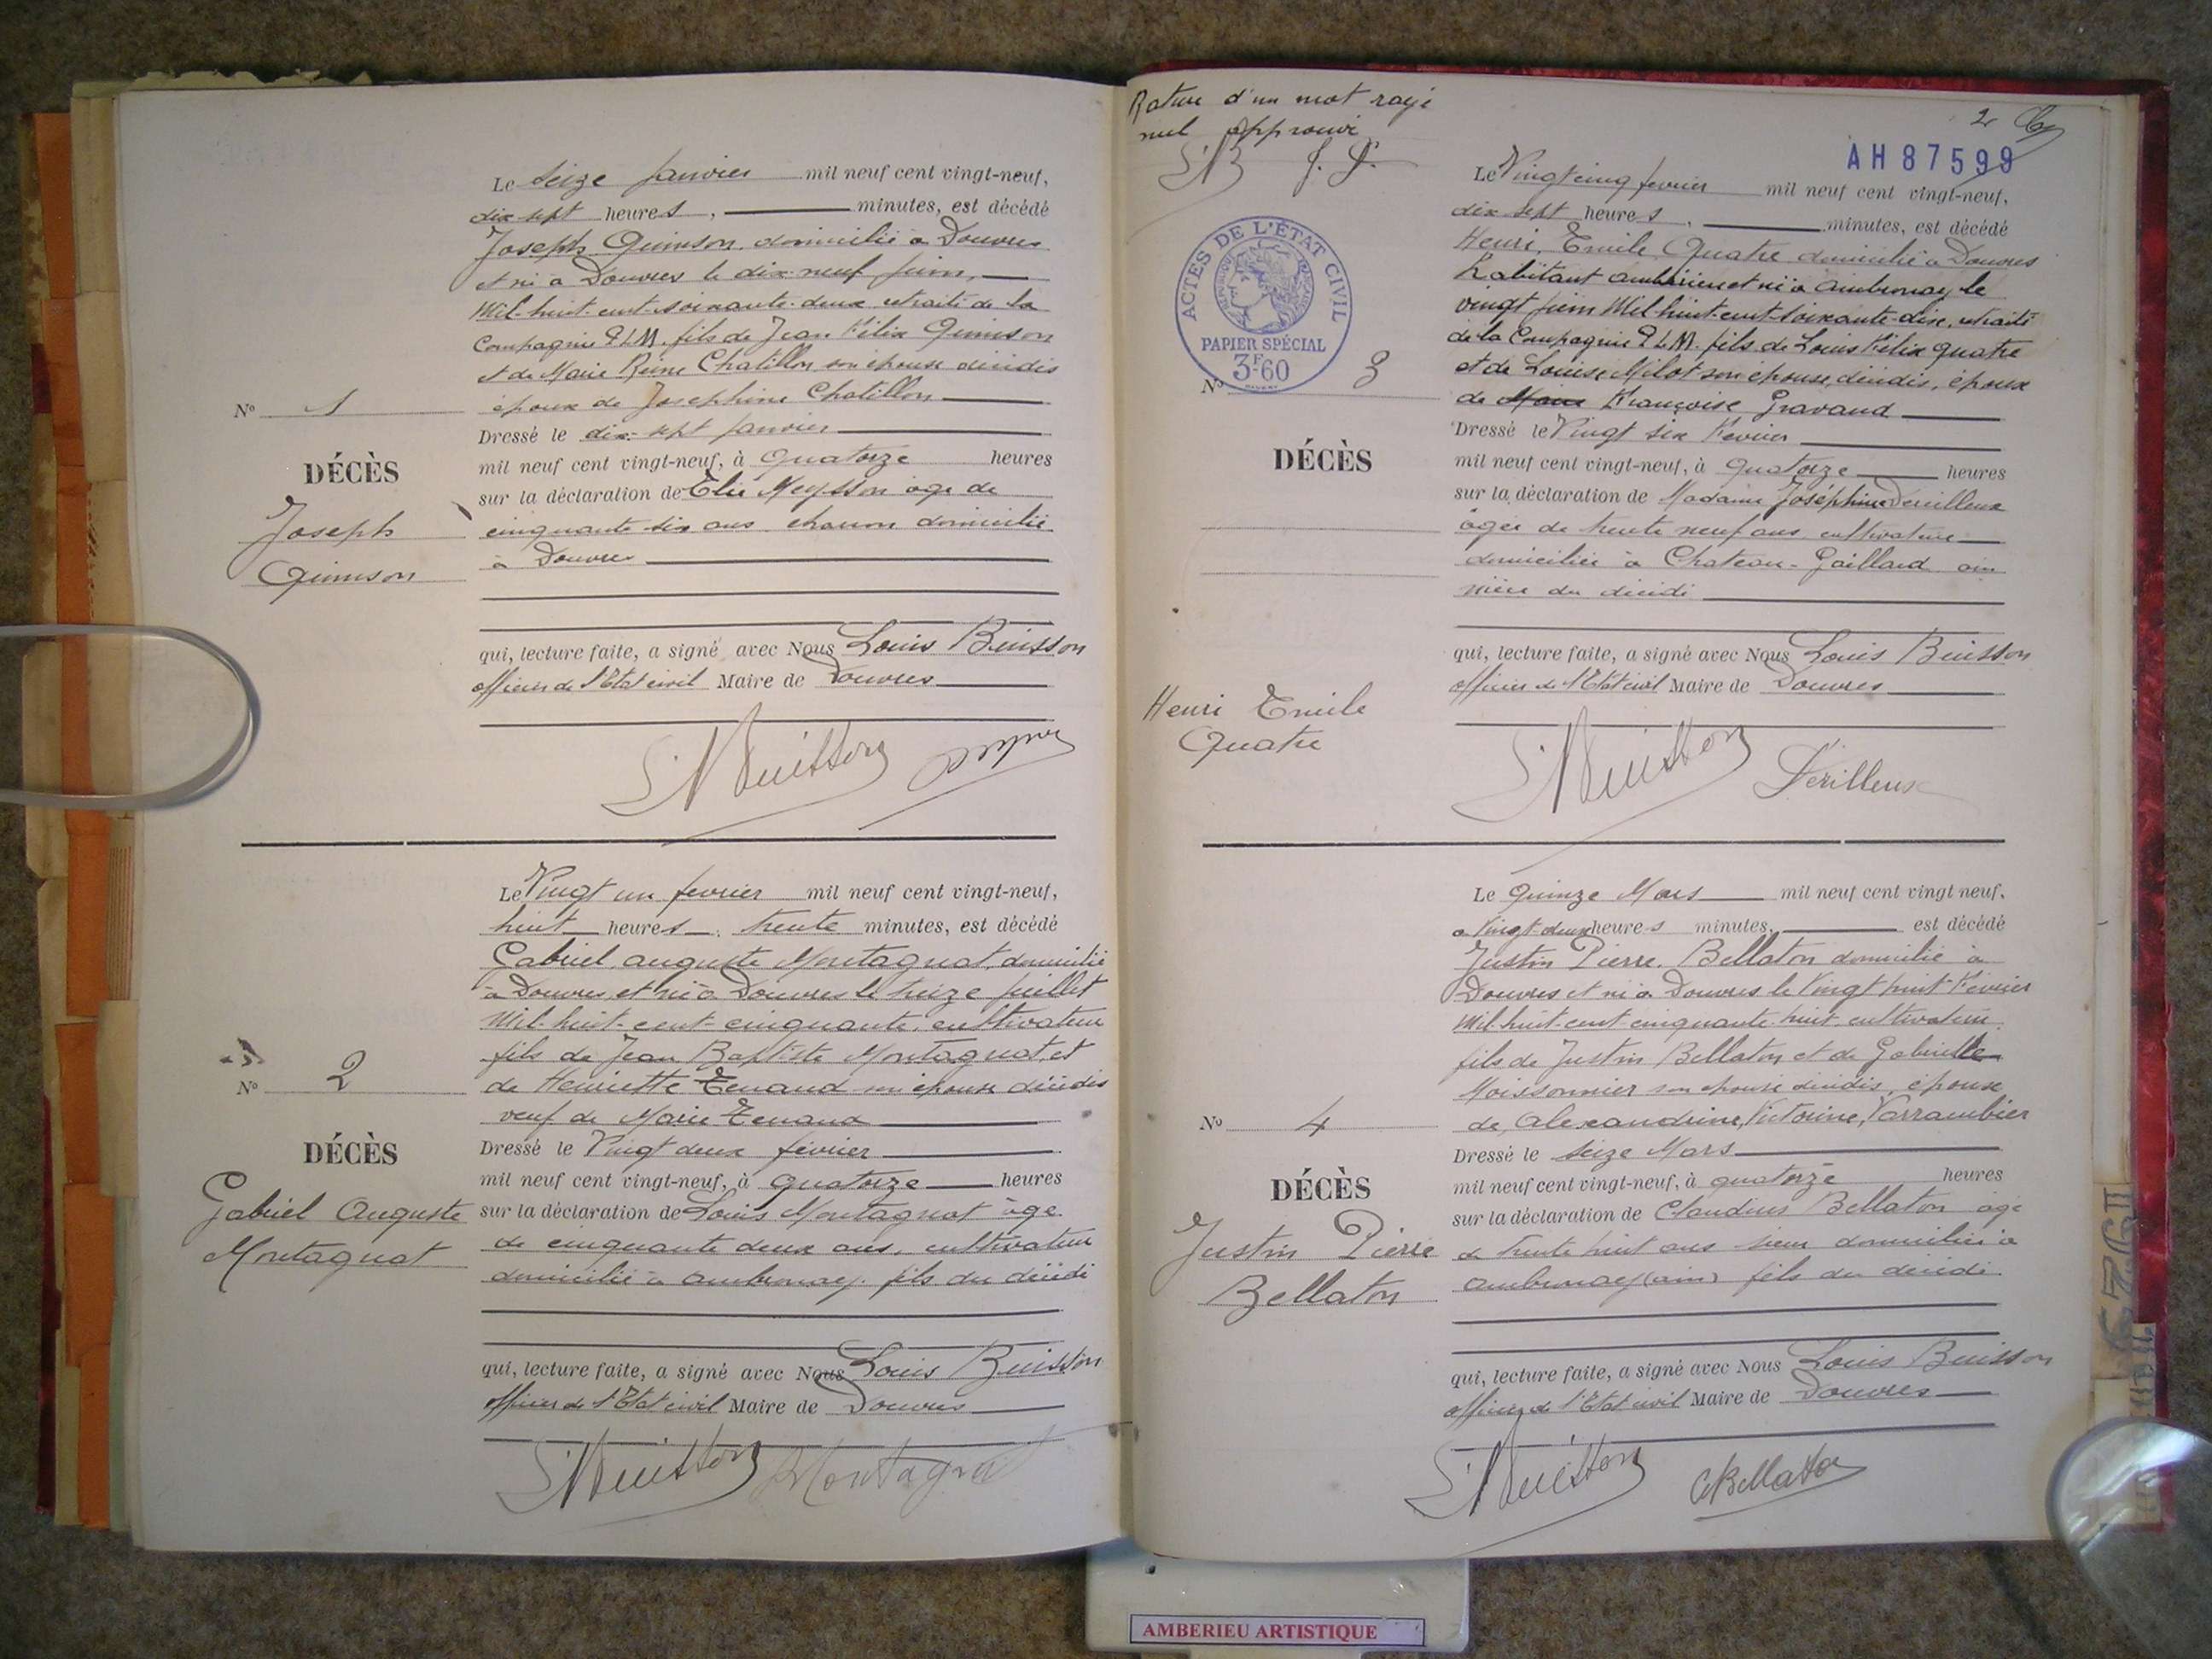 Le seize janvier mil neuf cent vingt-neuf,
dix sept heures, minutes, est décédé
Joseph Quinson, domicilié à Douvres
et né à Douvres le dix-neuf juin,
Mil-huit-cent-soixante-deux retraité de la
Compagnie P.L.M. fils de Jean Félix Quinson
et de Marie Reine Chatillon son épouse décédés
époux de Josephine Chatillon
Dressé le dix-sept janvier
mil neuf cent vingt-neuf, à Quatorze heures
sur la déclaration de Elie Meysson âgé de
cinquante six ans charron domicilié
à Douvres
qui, lecture faite, a signé avec Nous Louis Buisson
officier de l'Etat civil Maire de Douvres
L Buisson
No 1
DÉCÈS
Joseph
Quinson
Le Vingt un fevrier mil neuf cent vingt-neuf,
huit heures, trente minutes, est décédé
Gabriel, auguste Montagnat, domicilié
à Douvres et né à Douvres le treize juillet
Mil-huit-cent-cinquante, cultivateur
fils de Jean Baptiste Montagnat, et
de Henriette Tenand son épouse décédés
veuf de Marie Tenand
Dressé le Vingt deux février
mil neuf cent vingt-neuf, à quatorze heures
sur la déclaration de Louis Montagnat âgé
de cinquante deux ans, cultivateur
domicilié à ambronay, fils du décédé
qui, lecture faite, a signé avec Nous Louis Buisson
officier de l'Etat civil Maire de Douvres
L Buisson Montagnat
No 2
DÉCÈS
Gabriel Auguste
Montagnat
Rature d'un mot rayé
nul approuvé
LB J. D.
2
AH 87599
ACTES DE L'ÉTAT CIVIL
PAPIER SPÉCIAL
3F60
Le Vingt cinq fevrier mil neuf cent vingt-neuf,
dix sept heures, minutes, est décédé
Henri, Emile, Quatre domicilié à Douvres
habitant ambérieu et né à Ambronay le
vingt juin Mil-huit-cent-soixante-dix, retraité
de la Compagnie P.L.M. fils de Louis Félix Quatre
et de Louise Milot son épouse, décédés, époux
de Marie Françoise Gravand
Dressé le Vingt six Février
mil neuf cent vingt-neuf, à quatorze heures
sur la déclaration de Madame Joséphine Derilleux
âgée de trente neuf ans, cultivatrice
domiciliée à Chateau-Gaillard ain
nièce du décédé
qui, lecture faite, a signé avec Nous Louis Buisson
officier de l'Etat civil Maire de Douvres
L Buisson Derilleux
No 3
DÉCÈS
Henri Emile
Quatre
Le Quinze Mars mil neuf cent vingt neuf,
à Vingt-deux heures minutes, est décédé
Justin Pierre, Bellaton domicilié à
Douvres et né à Douvres le Vingt huit Février
Mil-huit-cent-cinquante-huit, cultivateur
fils de Justin Bellaton et de Gabrielle
Moissonnier son épouse décédés, époux
de, Alexandrine, Victorine, Varrambier
Dressé le Seize Mars
mil neuf cent vingt-neuf, à quatorze heures
sur la déclaration de Claudius Bellaton âgé
de trente huit ans domicilié à
ambronay (ain) fils du décédé
qui, lecture faite, a signé avec Nous Louis Buisson
officier de l'Etat civil Maire de Douvres
L Buisson C Bellaton
No 4
DÉCÈS
Justin Pierre
Bellaton
AMBERIEU ARTISTIQUE